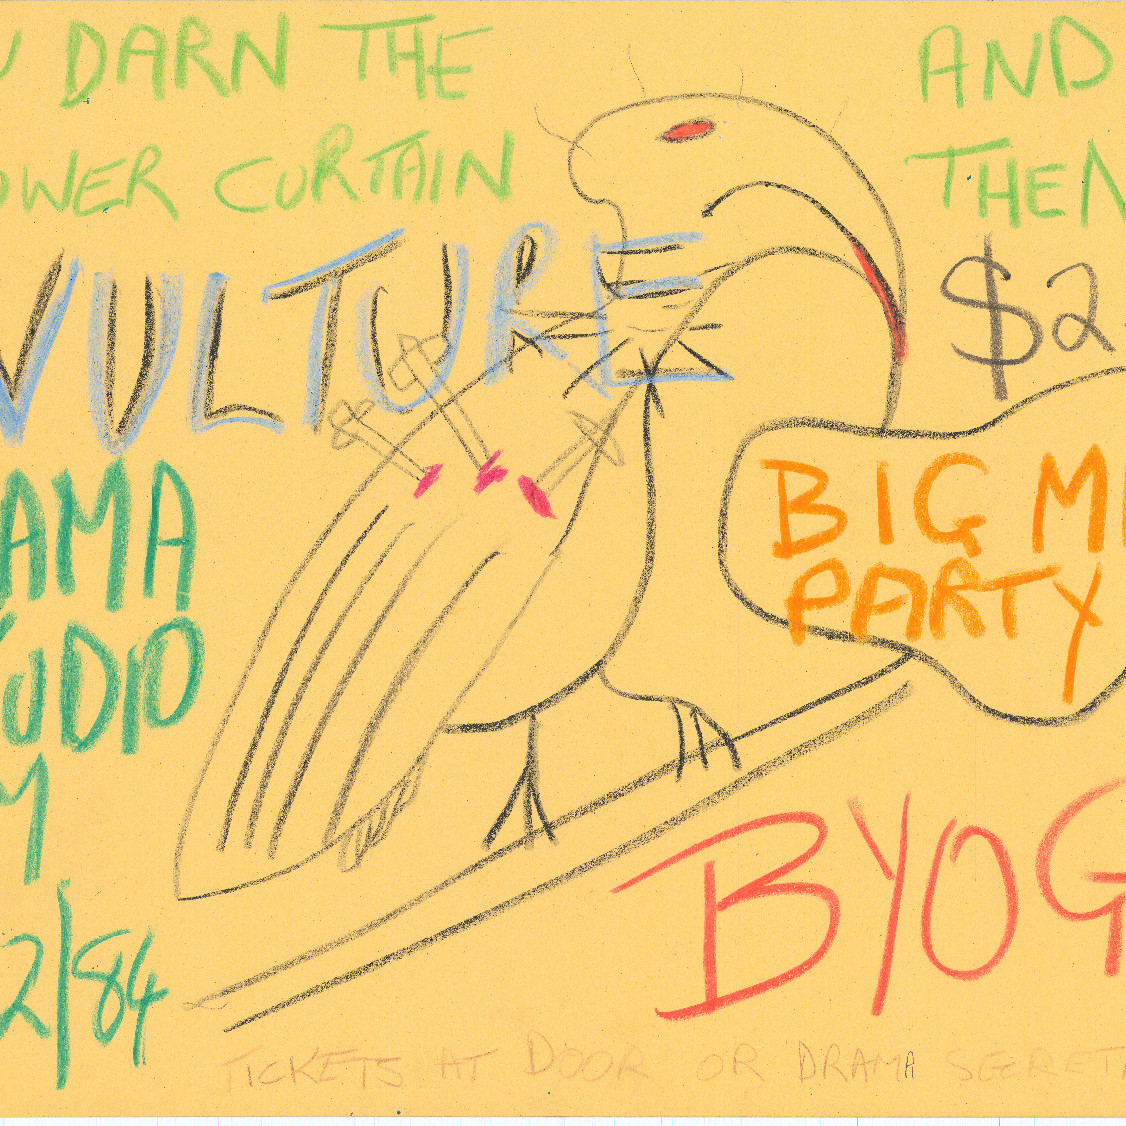 U DARN THE
OWER CURTAIN
AND
THEN
VULTURE
$2
AMA
UDIO
M
2/84
BIG M
PARTY
BYOG
TICKETS AT DOOR OR DRAMA SECRET